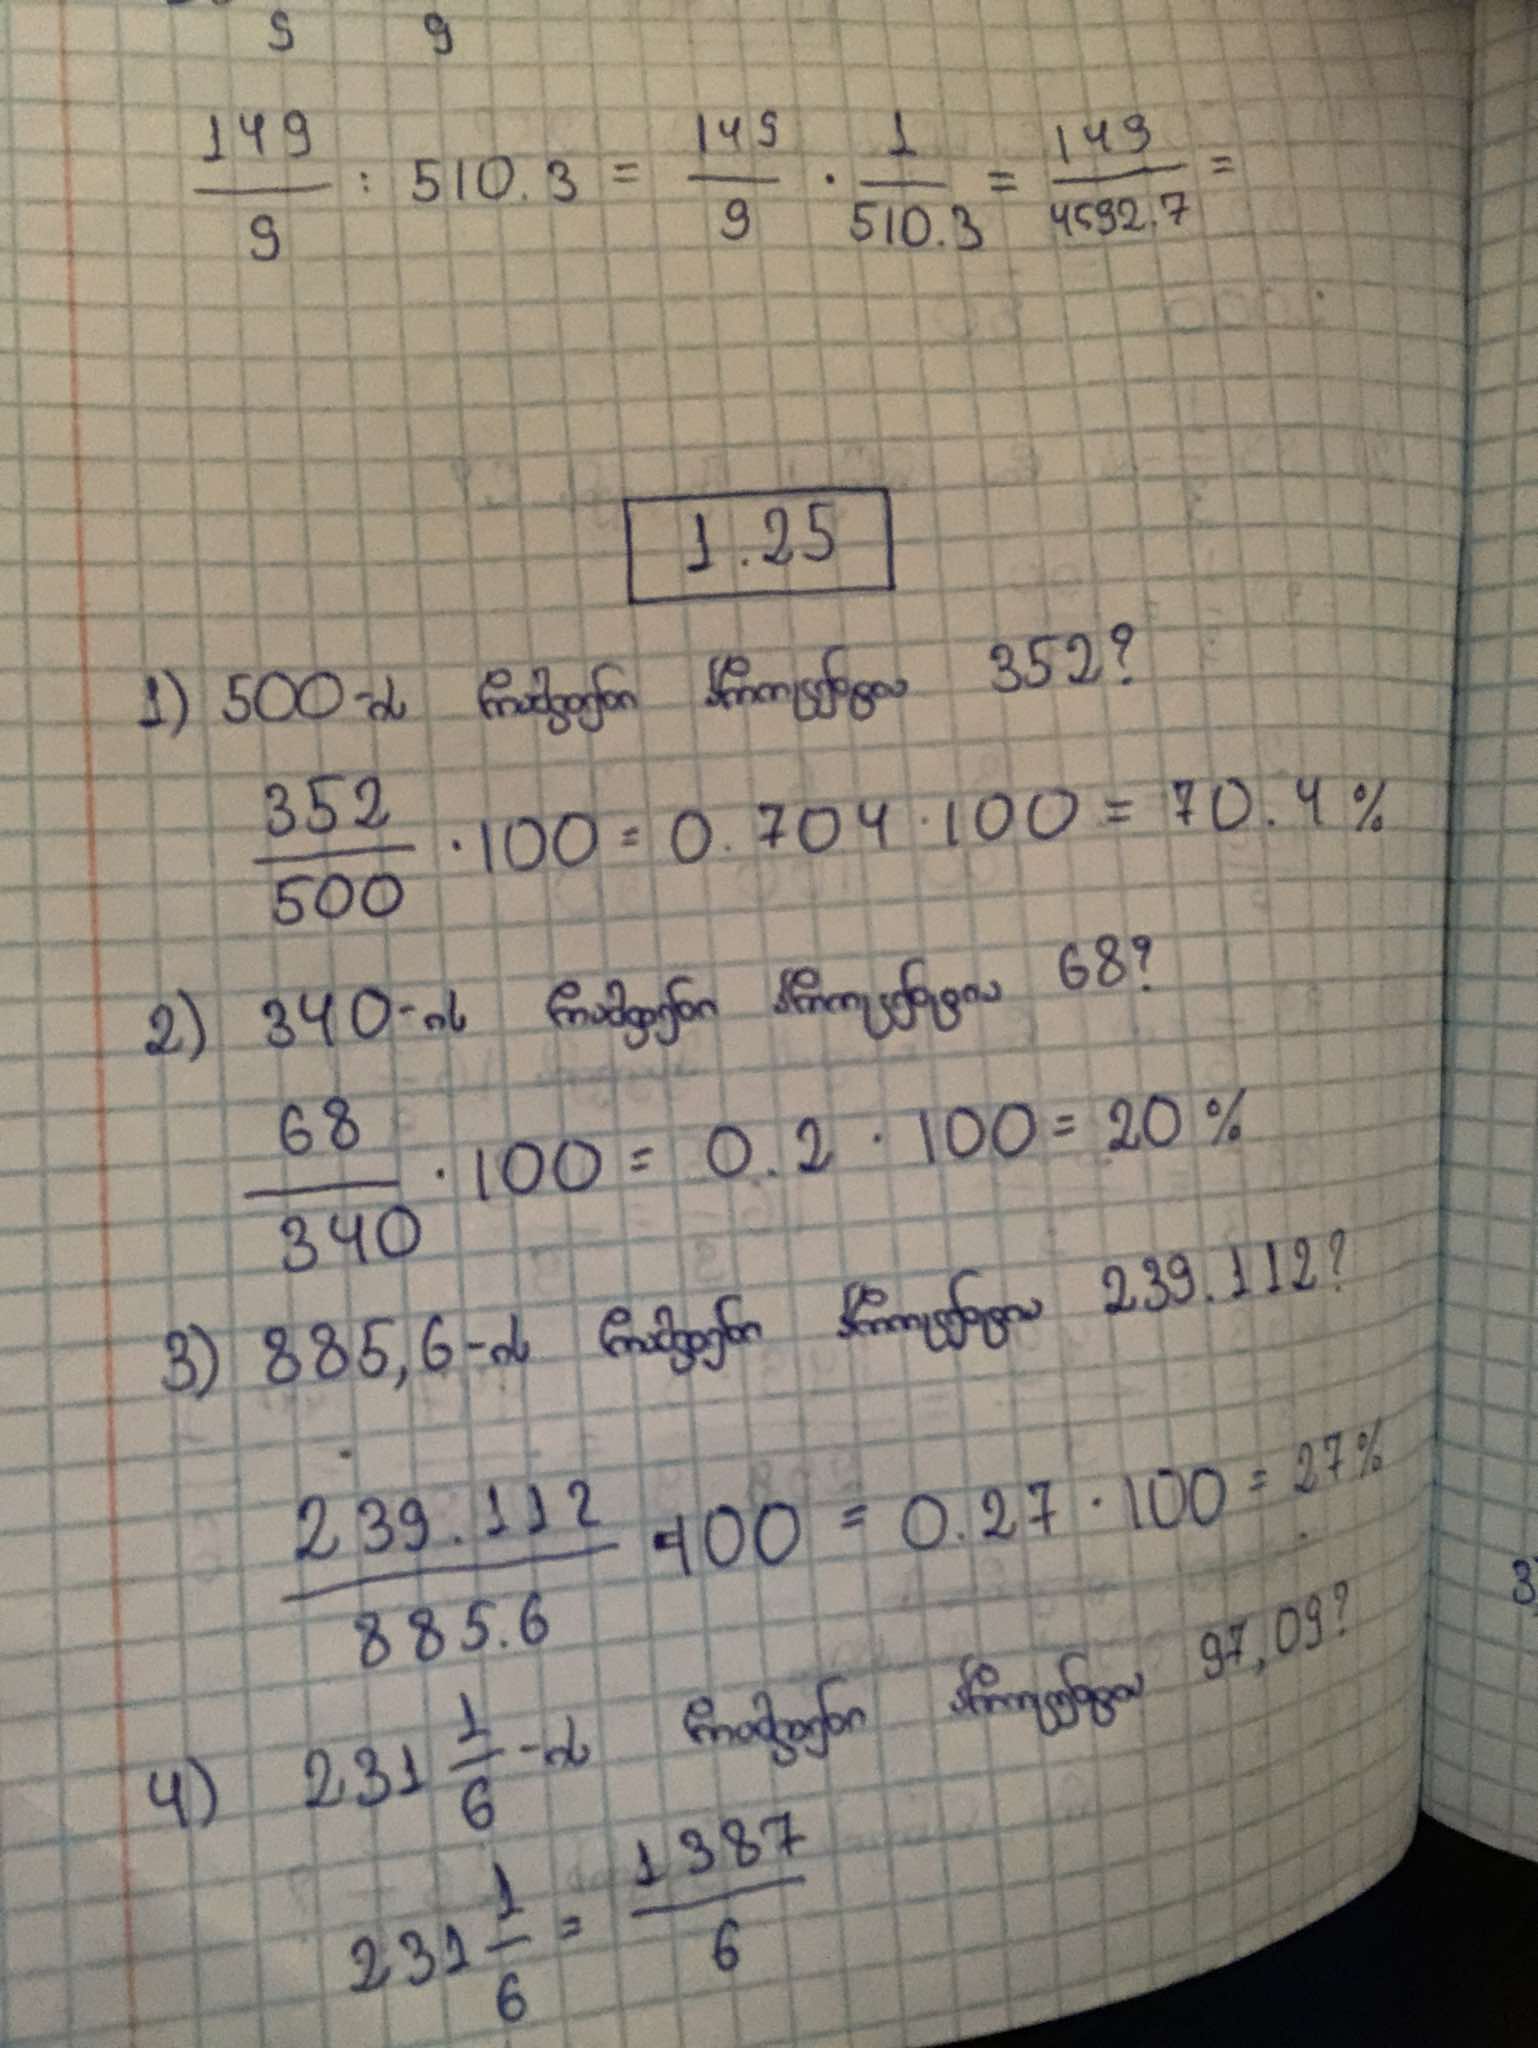 9 9
149/9 : 510.3 = 149/9 · 1/510.3 = 149/4592.7 =
1.25
1) 500-ის რამდენი პროცენტია 352?
352/500 · 100 = 0.704 · 100 = 70.4 %
2) 340-ის რამდენი პროცენტია 68?
68/340 · 100 = 0.2 · 100 = 20 %
3) 885,6-ის რამდენი პროცენტია 239.112?
239.112/885.6 · 100 = 0.27 · 100 = 27 %
4) 231 1/6-ის რამდენი პროცენტია 97,09?
231 1/6 = 1387/6